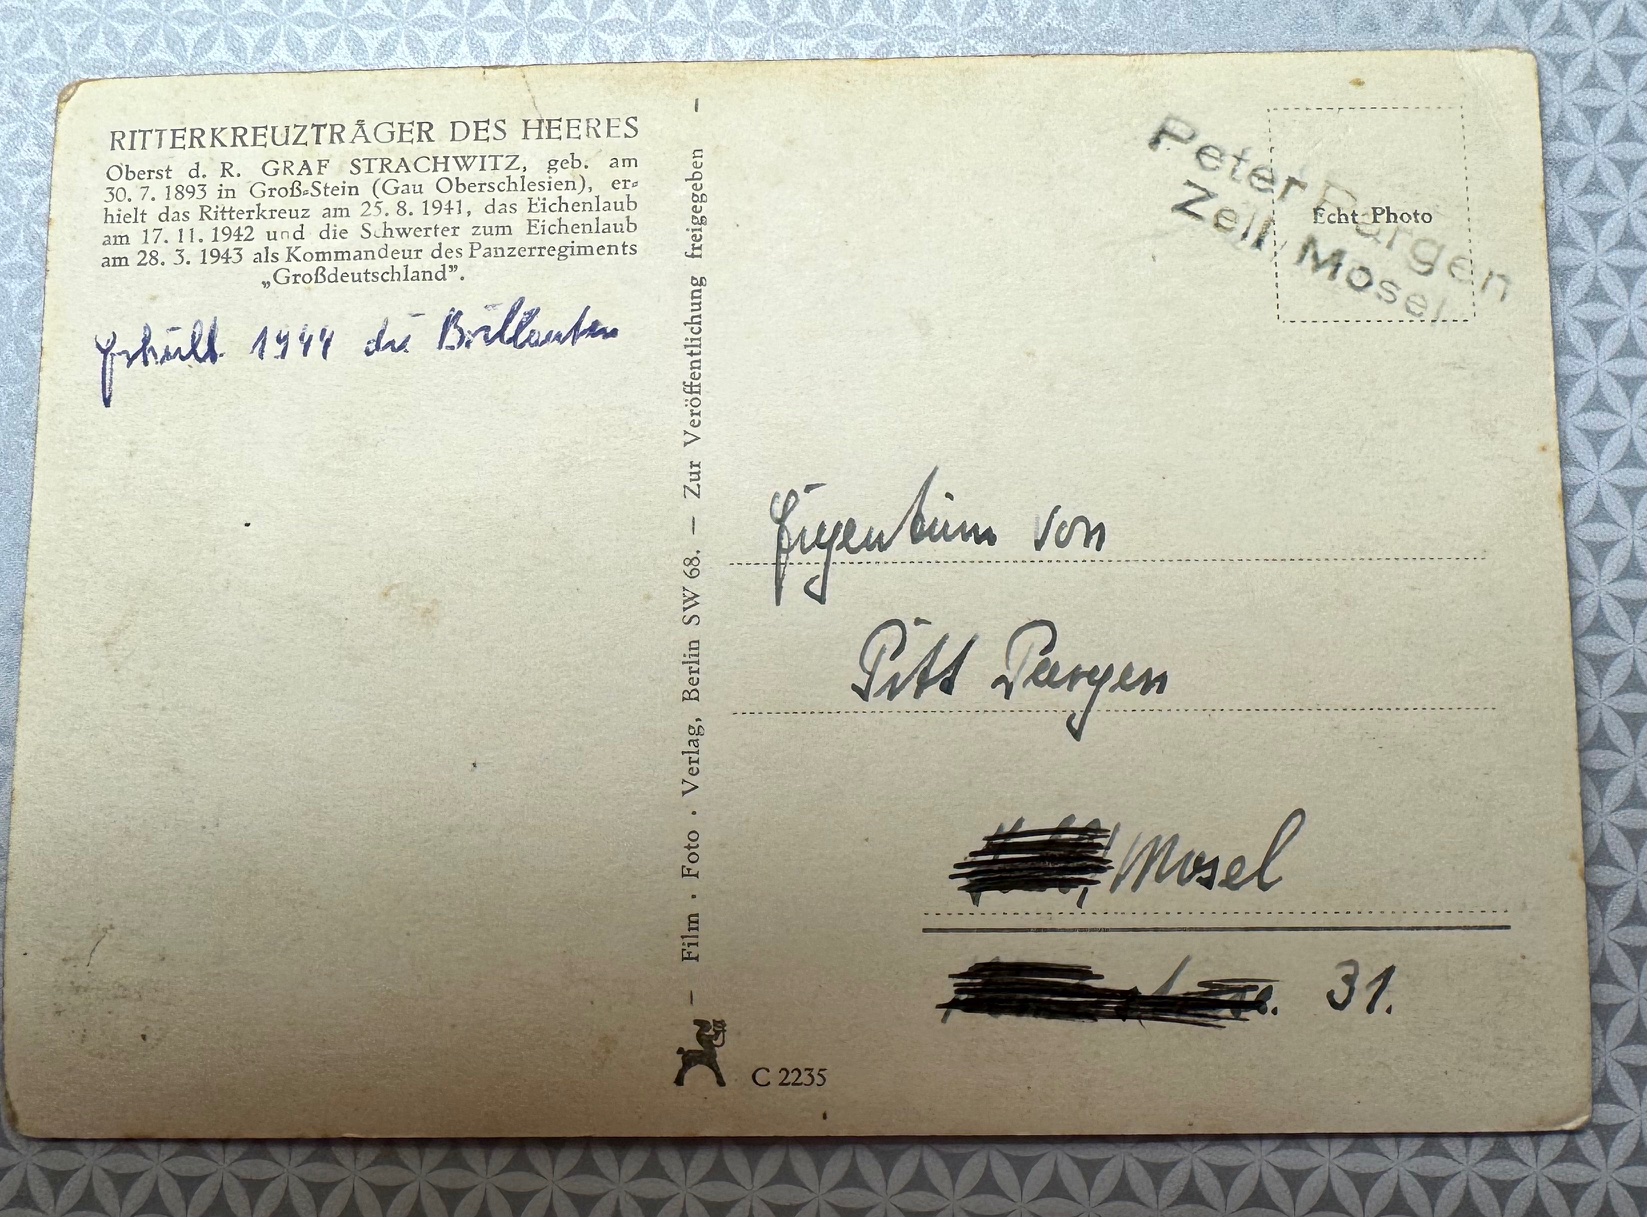 RITTERKREUZTRÄGER DES HEERES
Oberst d. R. GRAF STRACHWITZ, geb. am
30. 7. 1893 in Groß-Stein (Gau Oberschlesien), er-
hielt das Ritterkreuz am 25. 8. 1941, das Eichenlaub
am 17. 11. 1942 und die Schwerter zum Eichenlaub
am 28. 3. 1943 als Kommandeur des Panzerregiments
„Großdeutschland”.
1944 die Brillanten
Film · Foto · Verlag, Berlin SW 68. — Zur Veröffentlichung freigegeben
Peter Pargen
Zell, Mosel
Echt Photo
Eigentum von
Pitt Pargen
Mosel
31.
C 2235